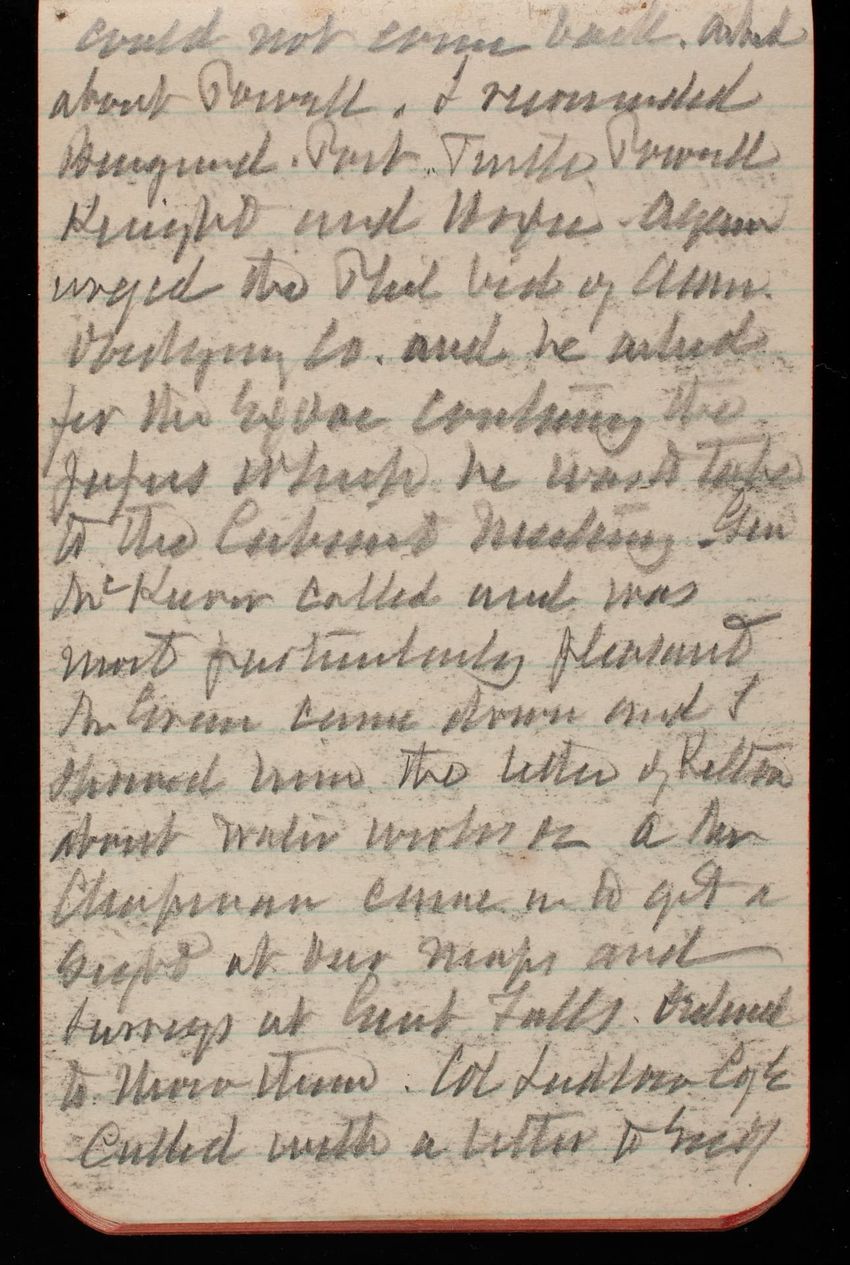 could not come back. asked
about Powell. I recommended
Port. Powell
Knight and again
urged the Phil bid of Am.
Dredging Co. and he asked
for the containing the
papers which he was to take
to the Cabinet Meeting. Gen
McKeever called and was
most particularly pleasant
Mr Green came down and I
showed him the letter of Kelton
about water works A Mr
Chapman came in to get a
sight at our maps and
surveys at Great Falls.
to them. Col Ludlow Cof E
Called with a letter to